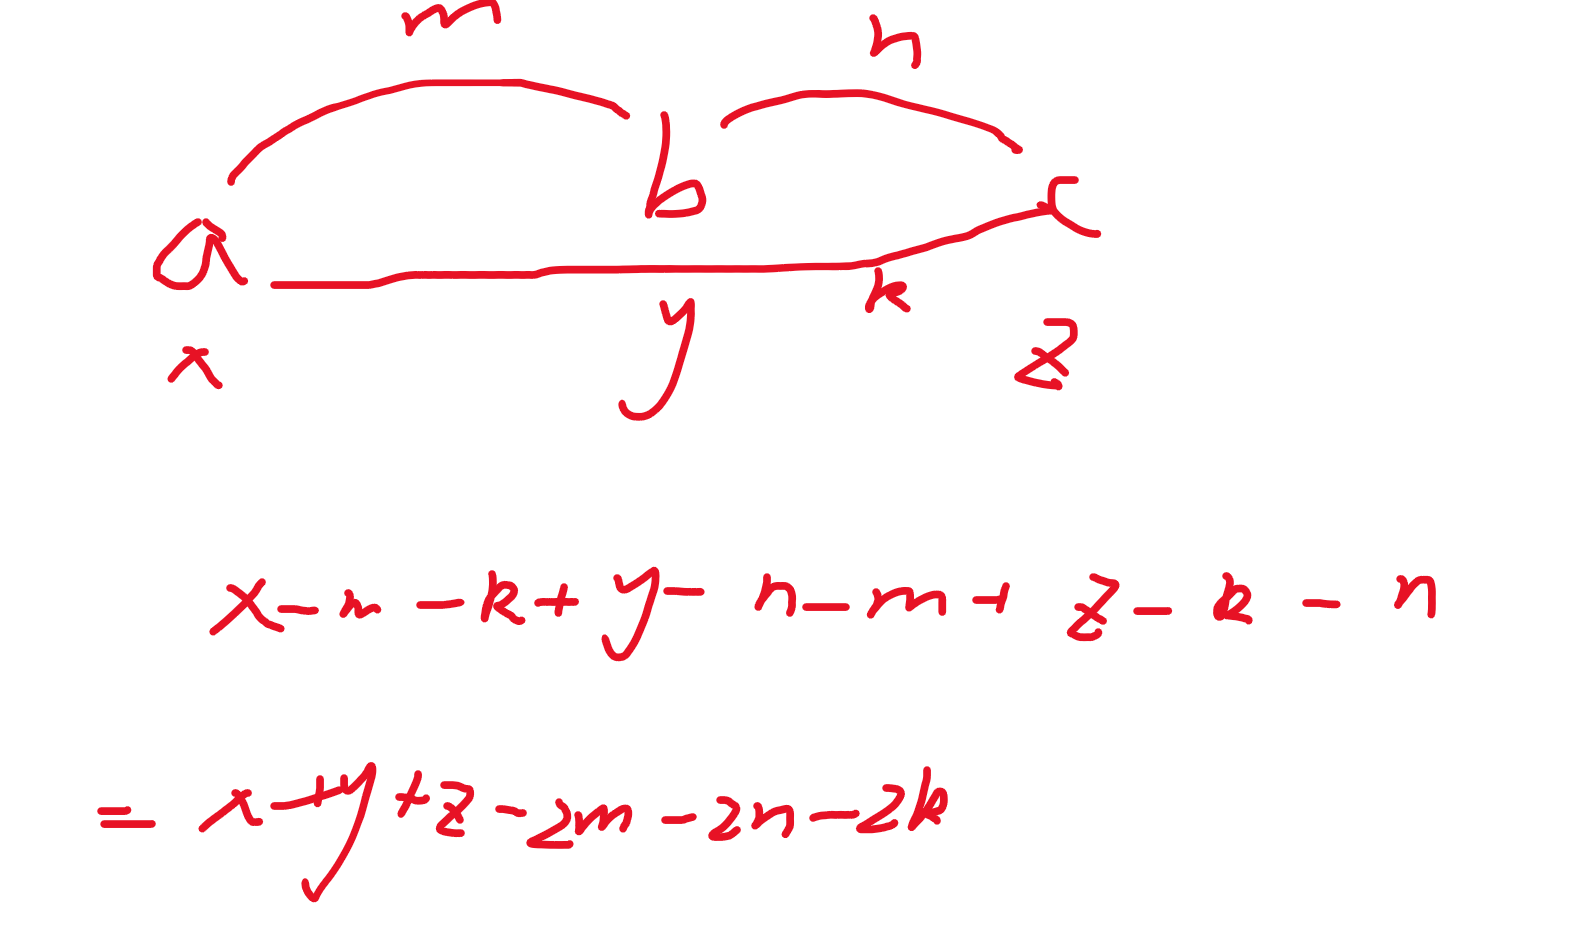 m n
a b c
k
x y z
x - m - k + y - n - m + z - k - n
= x + y + z - 2m - 2n - 2k